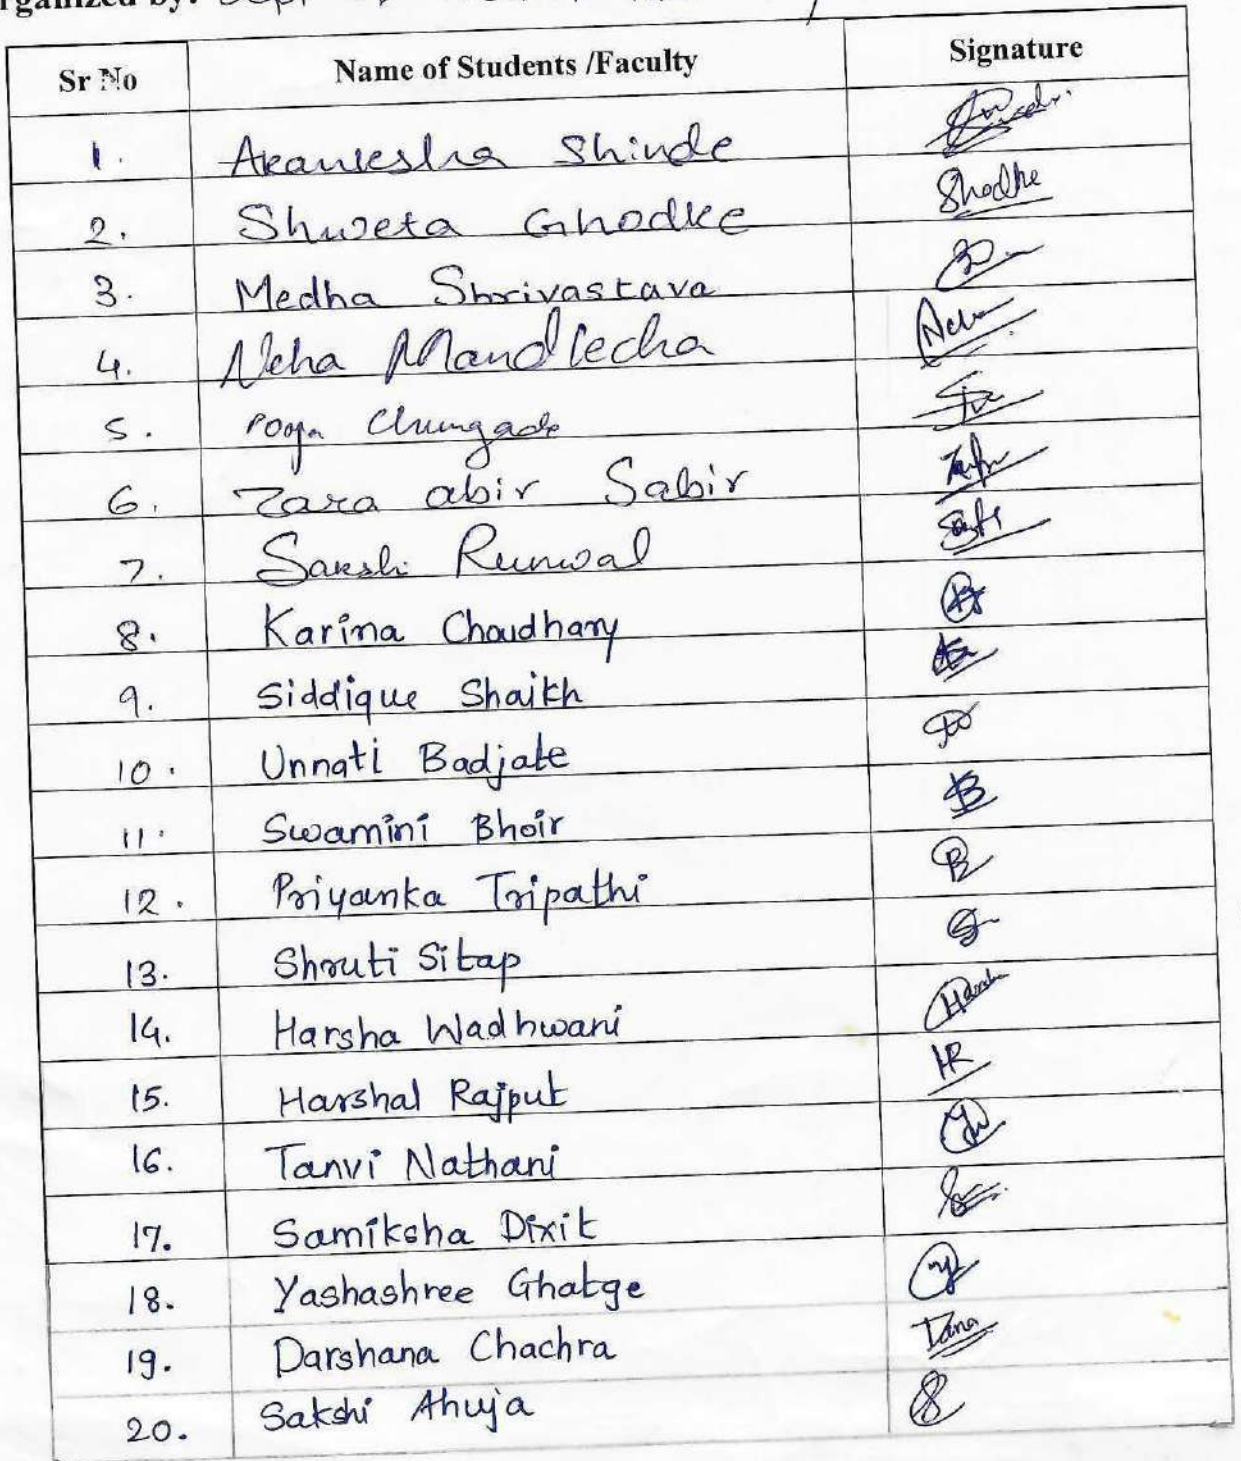 rganized by: Dept
Sr No Name of Students /Faculty Signature
1. Akanksha Shinde
2. Shweta Ghodke Ghodke
3. Medha Shrivastava
4. Neha Mandlecha Neha
5. Pooja Chungade
6. Zara abir Sabir
7. Sakshi Runwal
8. Karina Choudhary
9. Siddique Shaikh
10. Unnati Badjate
11. Swamini Bhoir
12. Priyanka Tripathi
13. Shruti Sitap
14. Harsha Wadhwani Harsha
15. Harshal Rajput HR
16. Tanvi Nathani
17. Samiksha Dixit
18. Yashashree Ghatge
19. Darshana Chachra
20. Sakshi Ahuja